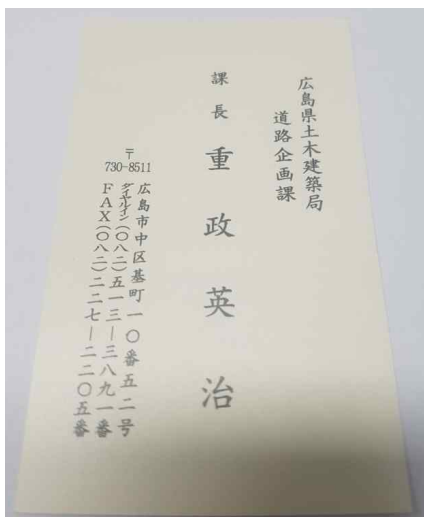 広島県土木建築局
道路企画課
課長 重政英治
〒
730-8511
広島市中区基町一〇番五二号
ダイヤルイン(〇八二)五一三ー三八九一番
FAX(〇八二)二二七ー二二〇五番